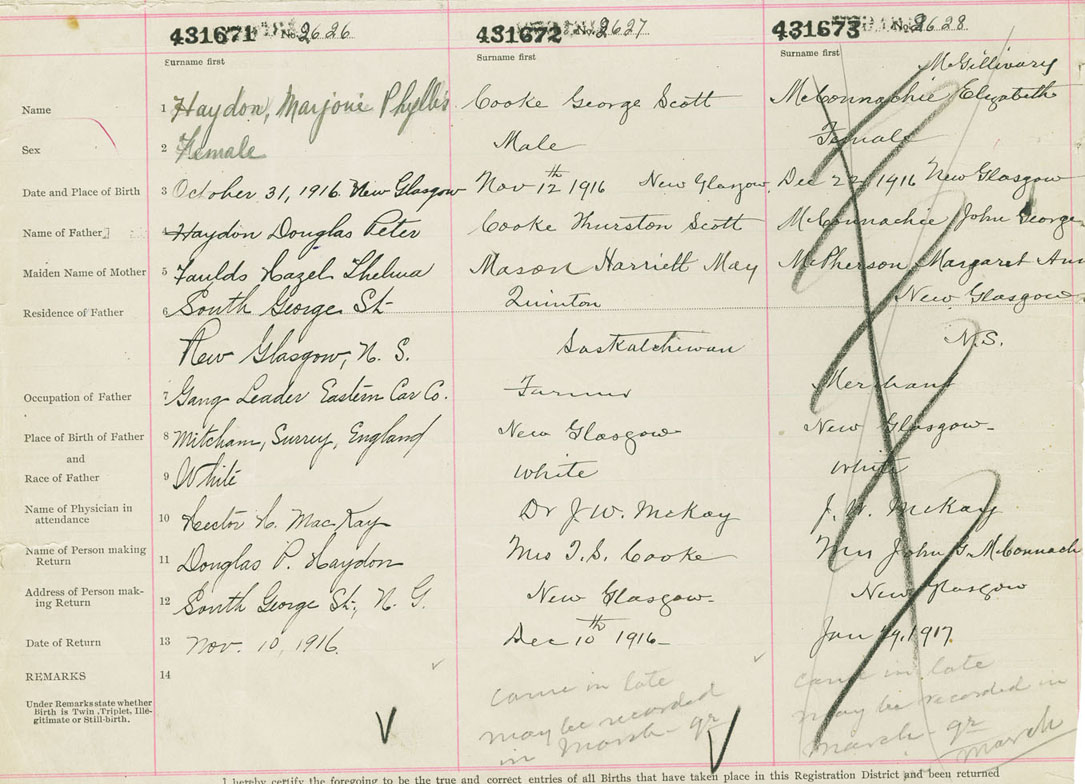 431671 No. 2626
431672 No. 2627
431673 No. 2628
Surname first
Surname first
Surname first
McGillivary
Name 1 Haydon, Marjorie Phyllis
Cooke George Scott
McConnachie Elizabeth
Sex 2 Female
Male
Female
Date and Place of Birth 3 October 31, 1916. New Glasgow
Nov 12th 1916 New Glasgow
Dec 22, 1916 New Glasgow
Name of Father 4 Haydon Douglas Peter
Cooke Thurston Scott
McConnachie John George
Maiden Name of Mother 5 Faulds Hazel Thelma
Mason Harriett May
McPherson Margaret Ann
Residence of Father 6 South George St
New Glasgow, N. S.
Quinton
Saskatchewan
New Glasgow
N.S.
Occupation of Father 7 Gang Leader Eastern Car Co.
Farmer
Merchant
Place of Birth of Father 8 Mitcham, Surrey, England
New Glasgow
New Glasgow
and
Race of Father 9 White
White
White
Name of Physician in
attendance 10 Hector H. MacKay
Dr J. W. McKay
J. W. McKay
Name of Person making
Return 11 Douglas P. Haydon
Mrs T. S. Cooke
Mrs John G. McConnach
Address of Person mak-
ing Return 12 South George St., N. G.
New Glasgow
New Glasgow
Date of Return 13 Nov. 10, 1916.
Dec 10th 1916
Jan 1917
REMARKS 14
Under Remarks state whether
Birth is Twin, Triplet, Ille-
gitimate or Still-birth.
came in late
may be recorded
in March qr
came in late
may be recorded in
March qr
March
I hereby certify the foregoing to be the true and correct entries of all Births that have taken place in this Registration District and been returned